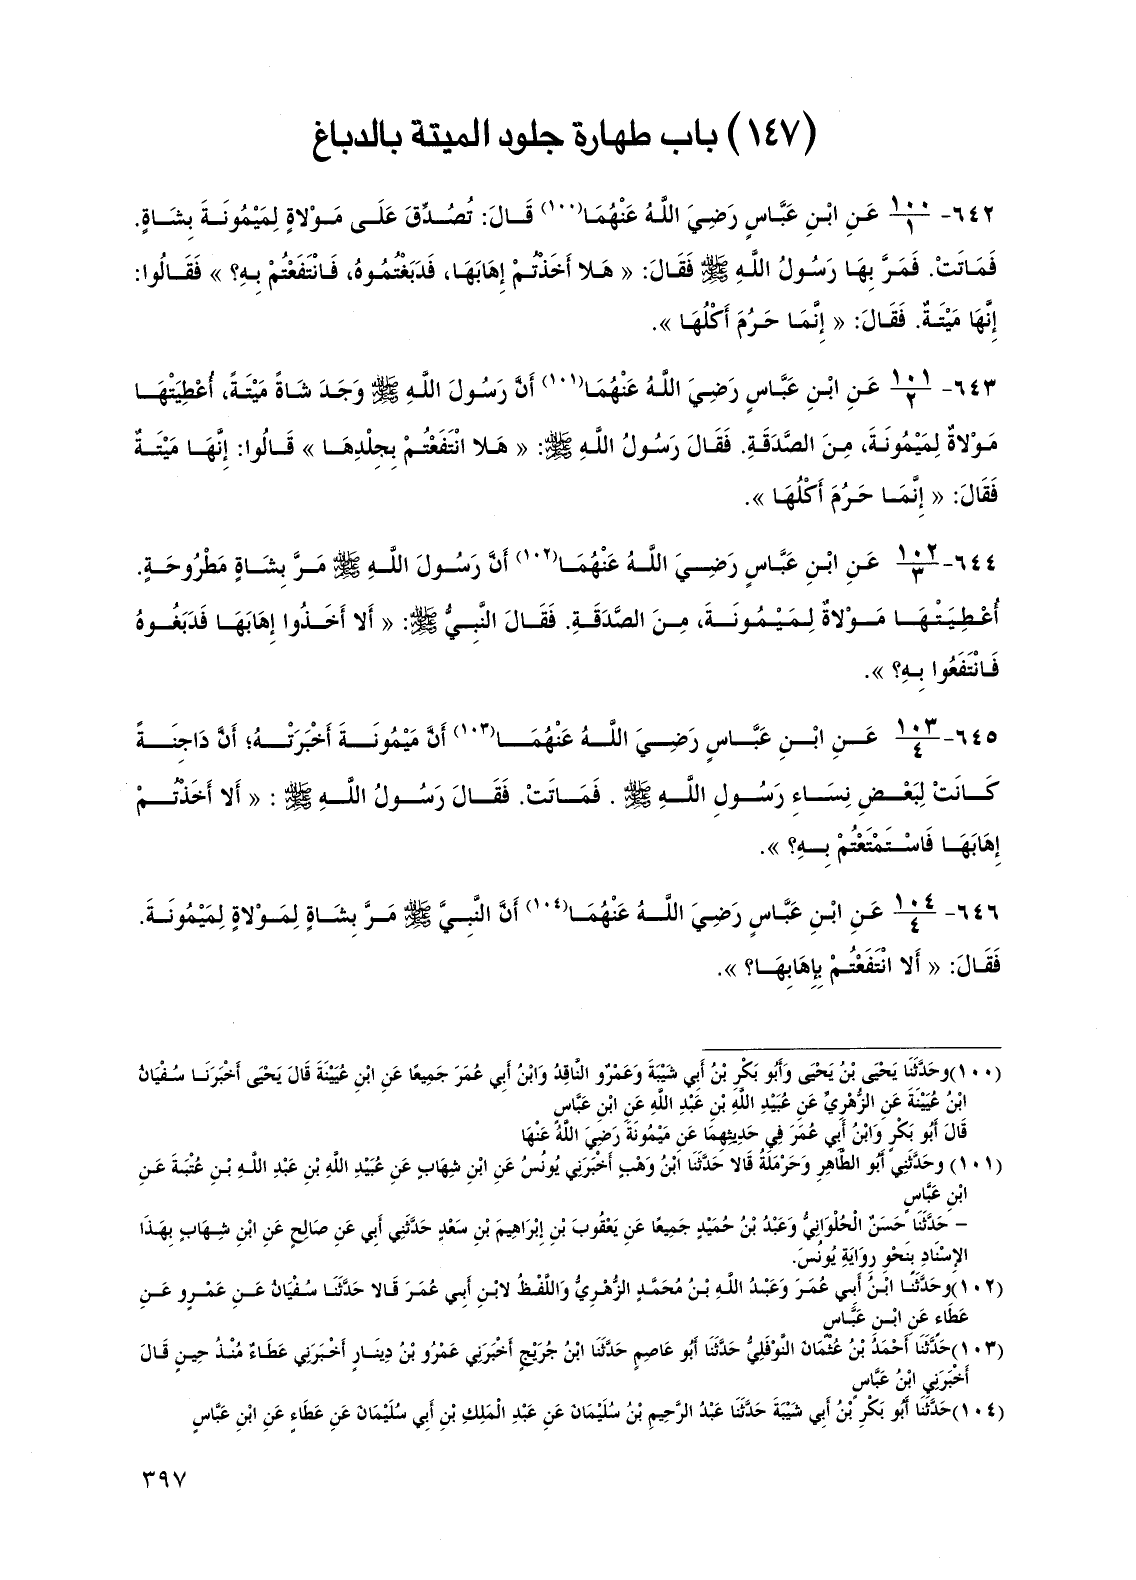 (١٤٧) باب طهارة جلود الميتة بالدباغ
٦٤٢- ١٠٠/١ عَنِ ابْنِ عَبَّاسٍ رَضِيَ اللَّهُ عَنْهُمَا(١٠٠) قَالَ: تُصُدِّقَ عَلَى مَوْلاةٍ لِمَيْمُونَةَ بِشَاةٍ.
فَمَاتَتْ. فَمَرَّ بِهَا رَسُولُ اللَّهِ ﷺ فَقَالَ: « هَلا أَخَذْتُمْ إِهَابَهَا، فَدَبَغْتُمُوهُ، فَانْتَفَعْتُمْ بِهِ؟ » فَقَالُوا:
إِنَّهَا مَيْتَةٌ. فَقَالَ: « إِنَّمَا حَرُمَ أَكْلُهَا ».
٦٤٣- ١٠١/٢ عَنِ ابْنِ عَبَّاسٍ رَضِيَ اللَّهُ عَنْهُمَا(١٠١) أَنَّ رَسُولَ اللَّهِ ﷺ وَجَدَ شَاةً مَيْتَةً، أُعْطِيَتْهَا
مَوْلاةٌ لِمَيْمُونَةَ، مِنَ الصَّدَقَةِ. فَقَالَ رَسُولُ اللَّهِ ﷺ: « هَلا انْتَفَعْتُمْ بِجِلْدِهَا » قَالُوا: إِنَّهَا مَيْتَةٌ
فَقَالَ: « إِنَّمَا حَرُمَ أَكْلُهَا ».
٦٤٤- ١٠٢/٣ عَنِ ابْنِ عَبَّاسٍ رَضِيَ اللَّهُ عَنْهُمَا(١٠٢) أَنَّ رَسُولَ اللَّهِ ﷺ مَرَّ بِشَاةٍ مَطْرُوحَةٍ.
أُعْطِيَتْهَا مَوْلاةٌ لِمَيْمُونَةَ، مِنَ الصَّدَقَةِ. فَقَالَ النَّبِيُّ ﷺ: « أَلا أَخَذُوا إِهَابَهَا فَدَبَغُوهُ
فَانْتَفَعُوا بِهِ؟ ».
٦٤٥- ١٠٣/٤ عَنِ ابْنِ عَبَّاسٍ رَضِيَ اللَّهُ عَنْهُمَا(١٠٣) أَنَّ مَيْمُونَةَ أَخْبَرَتْهُ؛ أَنَّ دَاجِنَةً
كَانَتْ لِبَعْضِ نِسَاءِ رَسُولِ اللَّهِ ﷺ . فَمَاتَتْ. فَقَالَ رَسُولُ اللَّهِ ﷺ : « أَلا أَخَذْتُمْ
إِهَابَهَا فَاسْتَمْتَعْتُمْ بِهِ؟ ».
٦٤٦- ١٠٤/٤ عَنِ ابْنِ عَبَّاسٍ رَضِيَ اللَّهُ عَنْهُمَا(١٠٤) أَنَّ النَّبِيَّ ﷺ مَرَّ بِشَاةٍ لِمَوْلاةٍ لِمَيْمُونَةَ.
فَقَالَ: « أَلا انْتَفَعْتُمْ بِإِهَابِهَا؟ ».
(١٠٠)وحَدَّثَنَا يَحْيَى بْنُ يَحْيَى وَأَبُو بَكْرِ بْنُ أَبِي شَيْبَةَ وَعَمْرٌو النَّاقِدُ وَابْنُ أَبِي عُمَرَ جَمِيعًا عَنِ ابْنِ عُيَيْنَةَ قَالَ يَحْيَى أَخْبَرَنَا سُفْيَانُ
ابْنُ عُيَيْنَةَ عَنِ الزُّهْرِيِّ عَنِ عُبَيْدِ اللَّهِ بْنِ عَبْدِ اللَّهِ عَنِ ابْنِ عَبَّاسٍ
قَالَ أَبُو بَكْرٍ وَابْنُ أَبِي عُمَرَ فِي حَدِيثِهِمَا عَن مَيْمُونَةَ رَضِيَ اللَّهُ عَنْهَا
(١٠١) وحَدَّثَنِي أَبُو الطَّاهِرِ وَحَرْمَلَةُ قَالا حَدَّثَنَا ابْنُ وَهْبٍ أَخْبَرَنِي يُونُسُ عَنِ ابْنِ شِهَابٍ عَن عُبَيْدِ اللَّهِ بْنِ عَبْدِ اللَّهِ بْنِ عُتْبَةَ عَنِ
ابْنِ عَبَّاسٍ
– حَدَّثَنَا حَسَنٌ الْحُلْوَانِيُّ وَعَبْدُ بْنُ حُمَيْدٍ جَمِيعًا عَن يَعْقُوبَ بْنِ إِبْرَاهِيمَ بْنِ سَعْدٍ حَدَّثَنِي أَبِي عَن صَالِحٍ عَنِ ابْنِ شِهَابٍ بِهَذَا
الإِسْنَادِ بِنَحْوِ رِوَايَةِ يُونُسَ.
(١٠٢)وحَدَّثَنَا ابْنُ أَبِي عُمَرَ وَعَبْدُ اللَّهِ بْنُ مُحَمَّدٍ الزُّهْرِيُّ وَاللَّفْظُ لابْنِ أَبِي عُمَرَ قَالا حَدَّثَنَا سُفْيَانُ عَن عَمْرٍو عَن
عَطَاءٍ عَنِ ابْنِ عَبَّاسٍ
(١٠٣)حَدَّثَنَا أَحْمَدُ بْنُ عُثْمَانَ النَّوْفَلِيُّ حَدَّثَنَا أَبُو عَاصِمٍ حَدَّثَنَا ابْنُ جُرَيْجٍ أَخْبَرَنِي عَمْرُو بْنُ دِينَارٍ أَخْبَرَنِي عَطَاءٌ مُنْذُ حِينٍ قَالَ
أَخْبَرَنِي ابْنُ عَبَّاسٍ
(١٠٤)حَدَّثَنَا أَبُو بَكْرِ بْنُ أَبِي شَيْبَةَ حَدَّثَنَا عَبْدُ الرَّحِيمِ بْنُ سُلَيْمَانَ عَن عَبْدِ الْمَلِكِ بْنِ أَبِي سُلَيْمَانَ عَن عَطَاءٍ عَنِ ابْنِ عَبَّاسٍ
٣٩٧